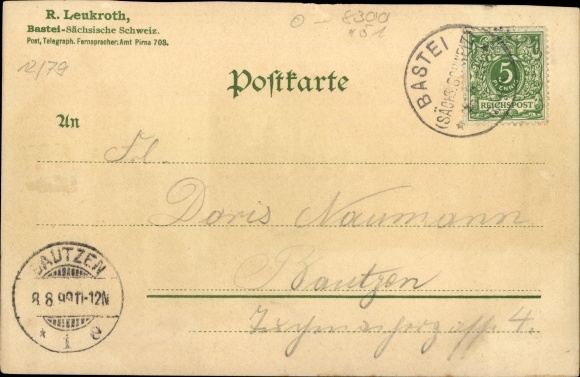 R. Leukroth,
Bastei-Sächsische Schweiz.
Post, Telegraph. Fernsprecher: Amt Pirna 703.
12/79
Postkarte
BASTEI
(SÄCHS. SCHWEIZ)
5
PFENNIG
REICHSPOST
An
Frl.
Doris Naumann
Bautzen
4.
BAUTZEN
8 8 99 11-12N
* 1 e